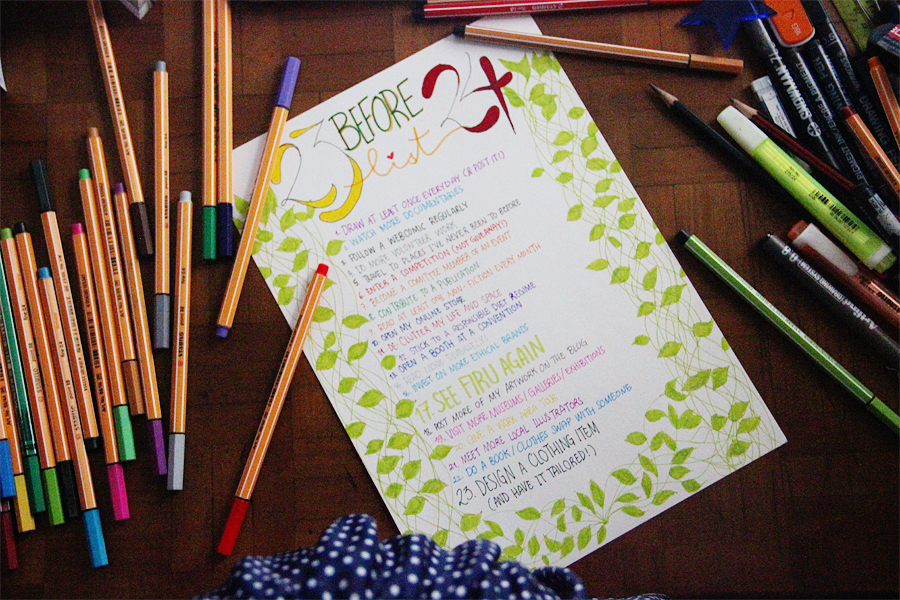 23 BEFORE 24
list
1. DRAW AT LEAST ONCE EVERYDAY (& POST IT!)
2. WATCH MORE DOCUMENTARIES
3. FOLLOW A WEBCOMIC REGULARLY
4. DO MORE VOLUNTEER WORK
5. TRAVEL TO PLACES I'VE NEVER BEEN TO BEFORE
6. ENTER A COMPETITION (NOT GIVEAWAY!)
7. BECOME A COMMITTEE MEMBER OF AN EVENT
8. CONTRIBUTE TO A PUBLICATION
9. READ AT LEAST ONE NON-FICTION EVERY MONTH
10. OPEN MY ONLINE STORE
11. DE CLUTTER MY LIFE AND SPACE
STICK TO A RESPONSIBLE DIET REGIME
OPEN A BOOTH AT A CONVENTION
INVEST ON MORE ETHICAL BRANDS
17. SEE FIRU AGAIN
18. POST MORE OF MY ARTWORK ON THE BLOG
19. VISIT MORE MUSEUMS/GALLERIES/EXHIBITIONS
21. MEET MORE LOCAL ILLUSTRATORS
22. DO A BOOK / CLOTHES SWAP WITH SOMEONE
23. DESIGN A CLOTHING ITEM
(AND HAVE IT TAILORED!)